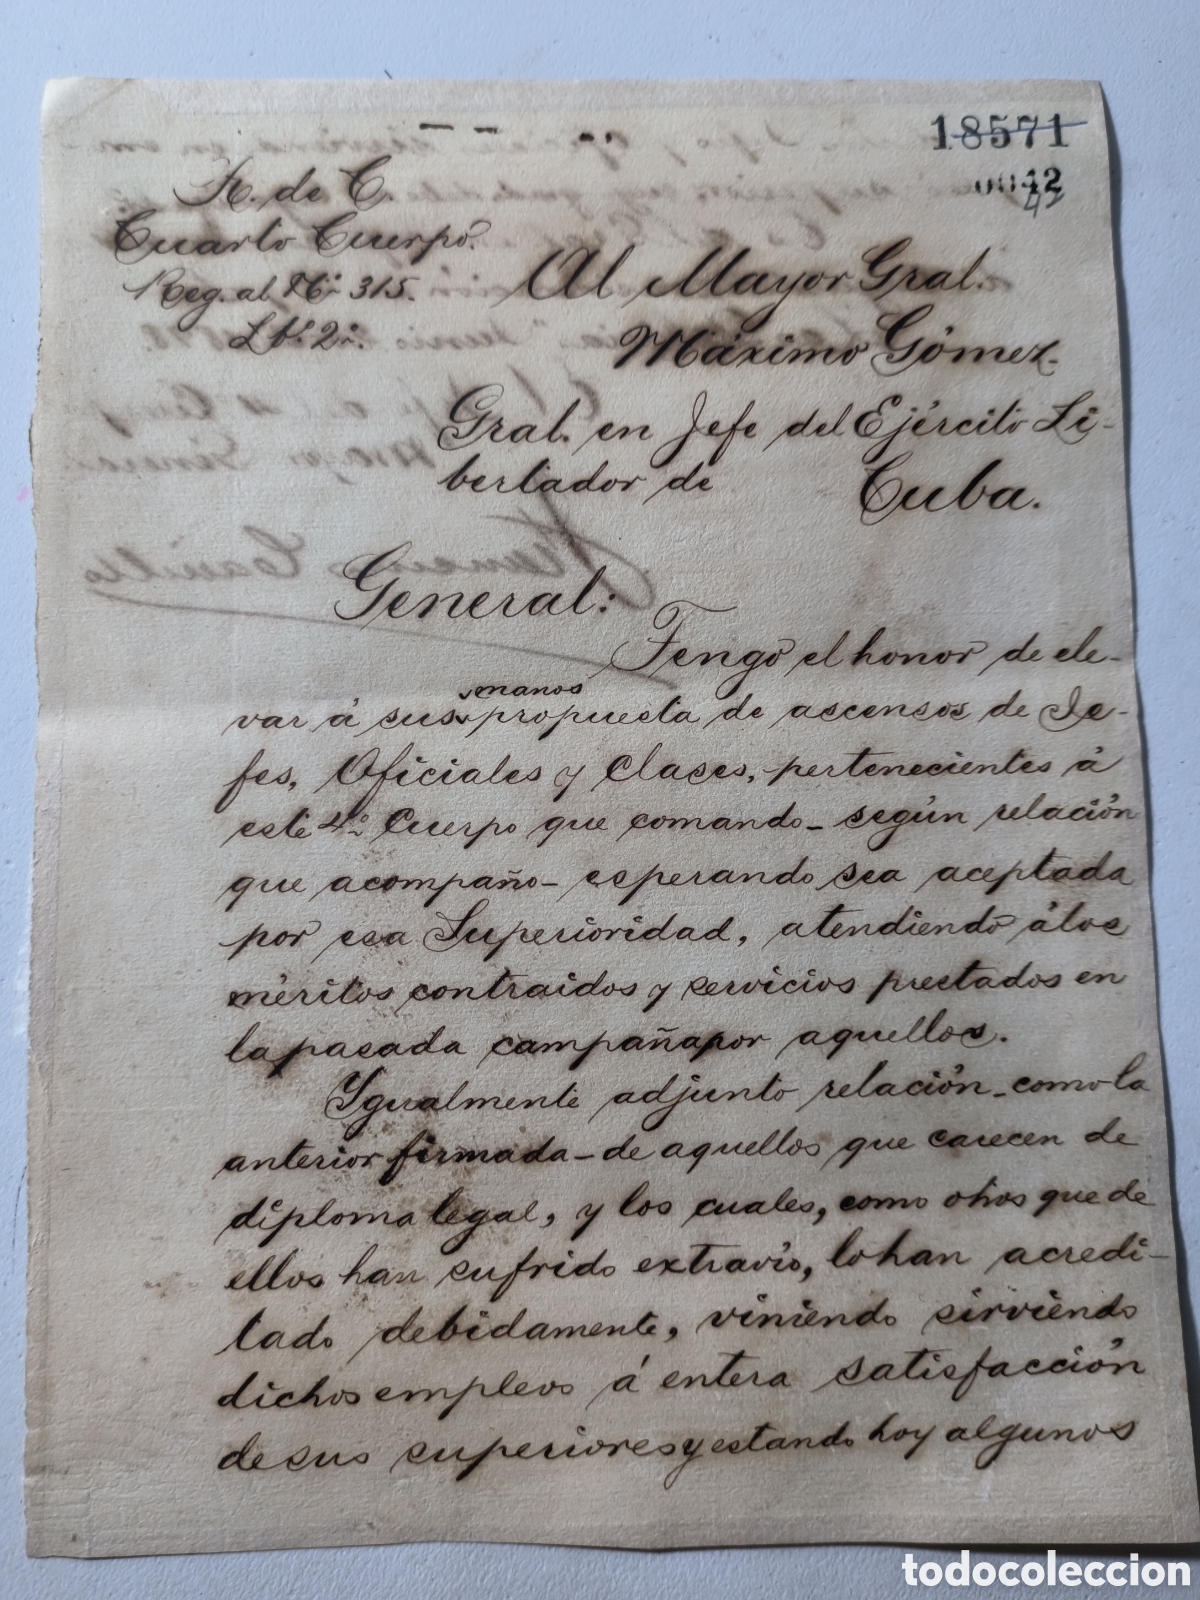 18571
0042
42
R. de C.
Cuarto Cuerpo.
Reg. al Nº 315.
Lbº 2º.
Al Mayor Gral.
Máximo Gómez.
Gral. en Jefe del Ejército Li-
bertador de Cuba.
General:
Tengo el honor de ele-
manos
var á sus propuesta de ascensos de Je-
fes, Oficiales y Clases, pertenecientes á
este 4º Cuerpo que comando - según relación
que acompaño - esperando sea aceptada
por esa Superioridad, atendiendo á los
méritos contraidos y servicios prestados en
la pasada campaña por aquellos.
Igualmente adjunto relación - como la
anterior firmada - de aquellos que carecen de
diploma legal, y los cuales, como otros que de
ellos han sufrido extravio, lo han acredi-
tado debidamente, viniendo sirviendo
dichos empleos á entera satisfacción
de sus superiores y estando hoy algunos
todocoleccion